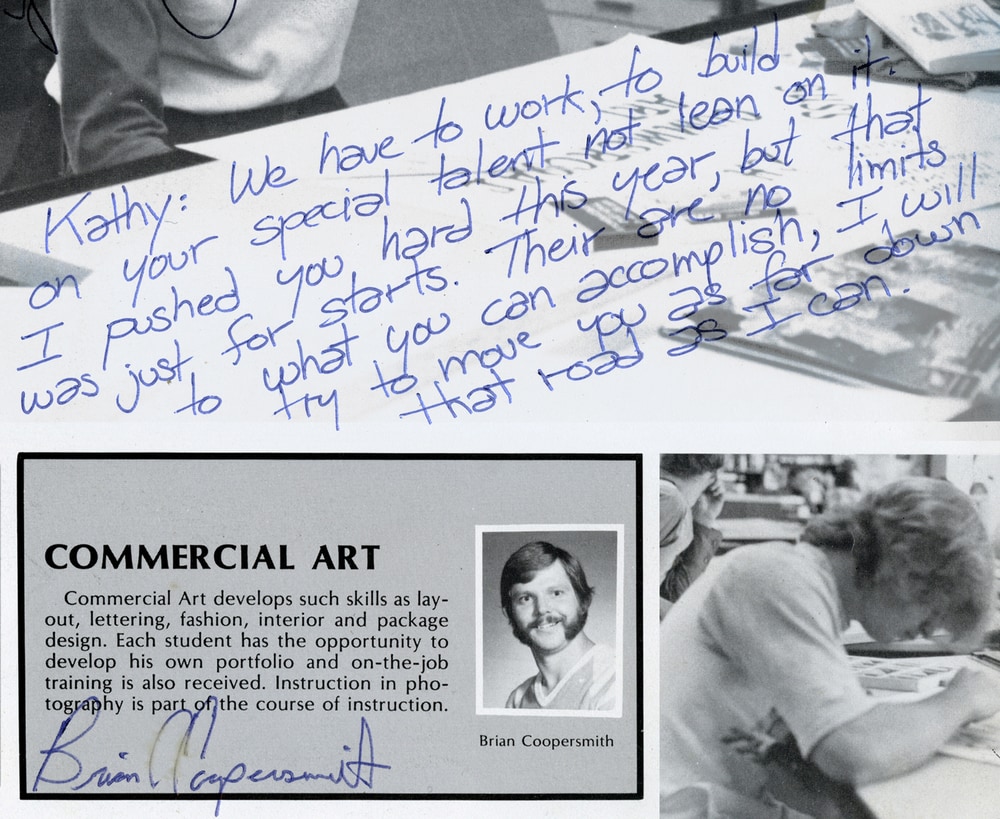 Kathy: We have to work, to build
on your special talent not lean on it.
I pushed you hard this year, but that
was just for starts. Their are no limits
to what you can accomplish, I will
try to move you as far down
that road as I can.
COMMERCIAL ART
Commercial Art develops such skills as lay-
out, lettering, fashion, interior and package
design. Each student has the opportunity to
develop his own portfolio and on-the-job
training is also received. Instruction in pho-
tography is part of the course of instruction.
Brian Coopersmith
Brian Coopersmith